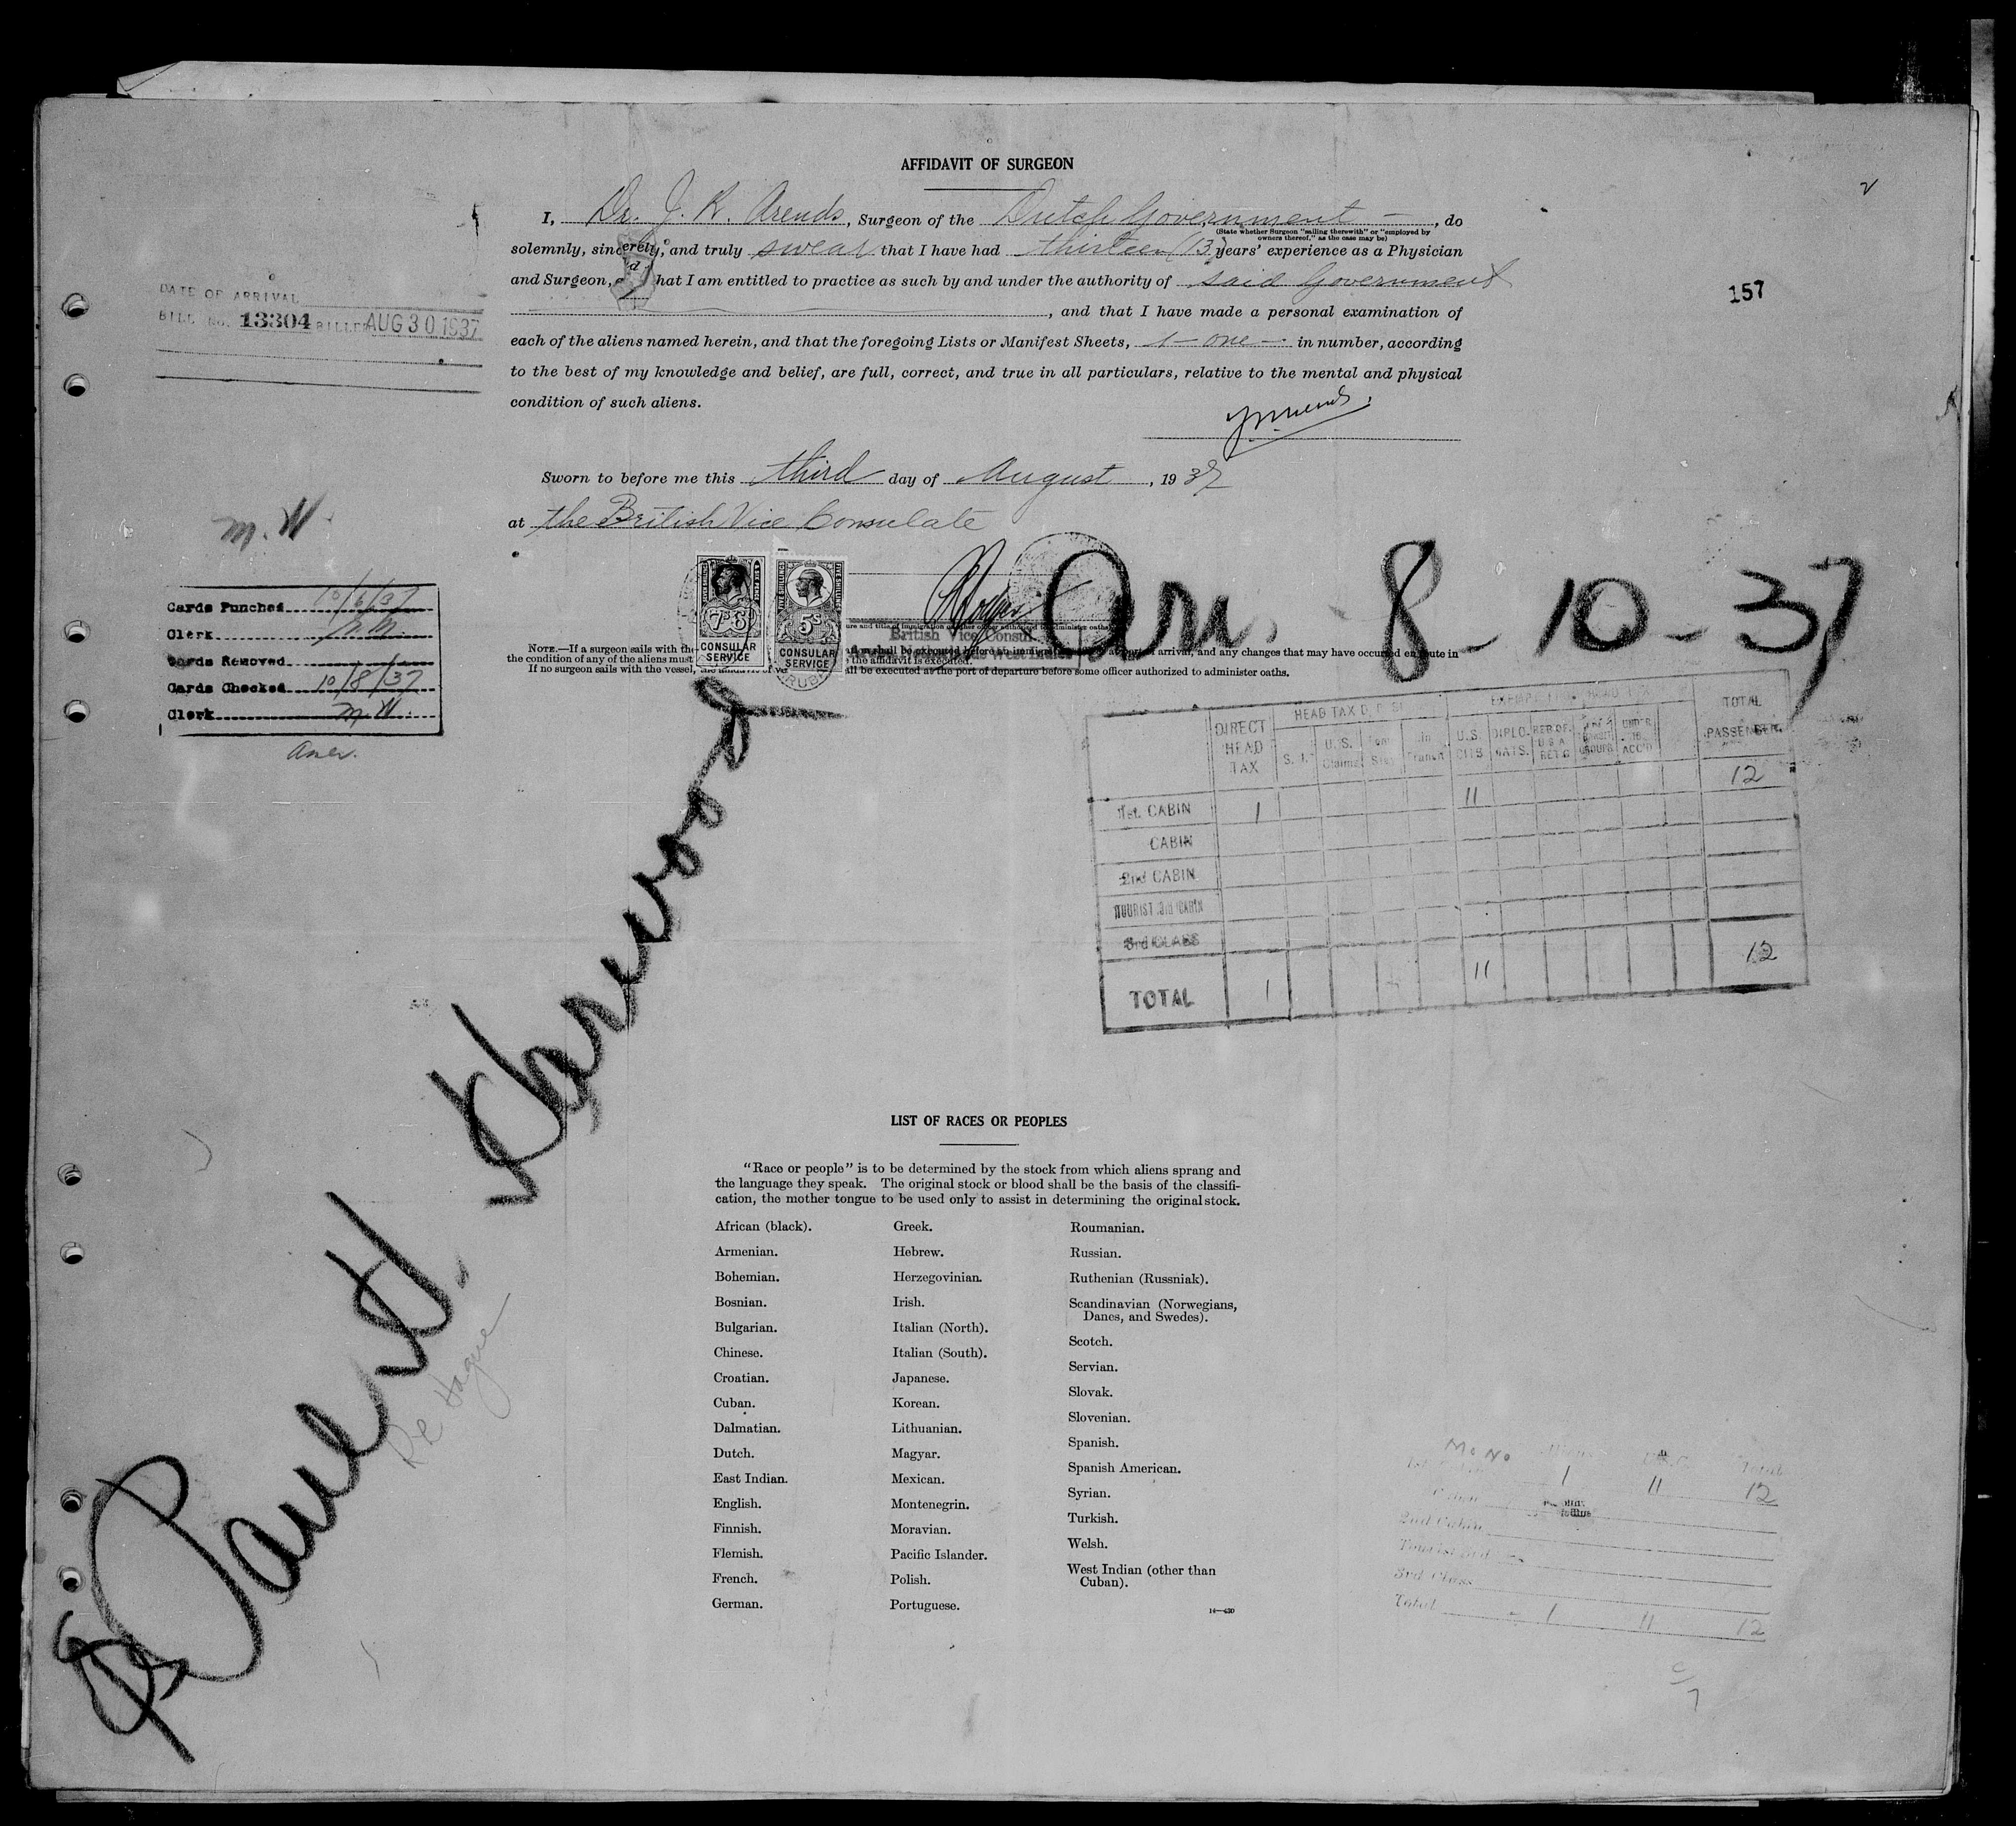 AFFIDAVIT OF SURGEON
I, Dr. J. K. Arends, Surgeon of the Dutch Government —, do
(State whether Surgeon "sailing therewith" or "employed by
owners thereof," as the case may be)
solemnly, sincerely, and truly swear that I have had thirteen (13) years' experience as a Physician
and Surgeon, and that I am entitled to practice as such by and under the authority of said Government
, and that I have made a personal examination of
each of the aliens named herein, and that the foregoing Lists or Manifest Sheets, 1 — one — in number, according
to the best of my knowledge and belief, are full, correct, and true in all particulars, relative to the mental and physical
condition of such aliens.
Sworn to before me this third day of August, 1937
at the British Vice Consulate
157
DATE OF ARRIVAL
BILL NO. 13304 BILLED AUG 30 1937
M. W.
Cards Punched
Clerk
Cards Removed
Cards Checked 10/8/37
Clerk M. W.
7s 6d
CONSULAR
SERVICE
FIVE SHILLINGS
5s
CONSULAR
SERVICE
British Vice Consul
Arr. 8-10-37
NOTE.—If a surgeon sails with the arrival, and any changes that may have occurred en route in
the condition of any of the aliens must the affidavit is executed.
If no surgeon sails with the vessel, all be executed at the port of departure before some officer authorized to administer oaths.
DIRECT HEAD TAX
HEAD TAX
S. I.
U.S. Claims
In Transit
U.S. CITS
DIPLOMATS.
UNDER 16 ACC'D
TOTAL PASSENGER
12
1st. CABIN 1 11
CABIN
2nd CABIN
TOURIST 3rd CABIN
3rd CLASS
TOTAL 1 11 12
Paul H. Harwood
De Hague
LIST OF RACES OR PEOPLES
"Race or people" is to be determined by the stock from which aliens sprang and
the language they speak. The original stock or blood shall be the basis of the classifi-
cation, the mother tongue to be used only to assist in determining the original stock.
African (black).
Armenian.
Bohemian.
Bosnian.
Bulgarian.
Chinese.
Croatian.
Cuban.
Dalmatian.
Dutch.
East Indian.
English.
Finnish.
Flemish.
French.
German.
Greek.
Hebrew.
Herzegovinian.
Irish.
Italian (North).
Italian (South).
Japanese.
Korean.
Lithuanian.
Magyar.
Mexican.
Montenegrin.
Moravian.
Pacific Islander.
Polish.
Portuguese.
Roumanian.
Russian.
Ruthenian (Russniak).
Scandinavian (Norwegians,
Danes, and Swedes).
Scotch.
Servian.
Slovak.
Slovenian.
Spanish.
Spanish American.
Syrian.
Turkish.
Welsh.
West Indian (other than
Cuban).
14—430
Total
1 11 12
2nd Cabin
Tourist 3rd
3rd Class
Total 1 11 12